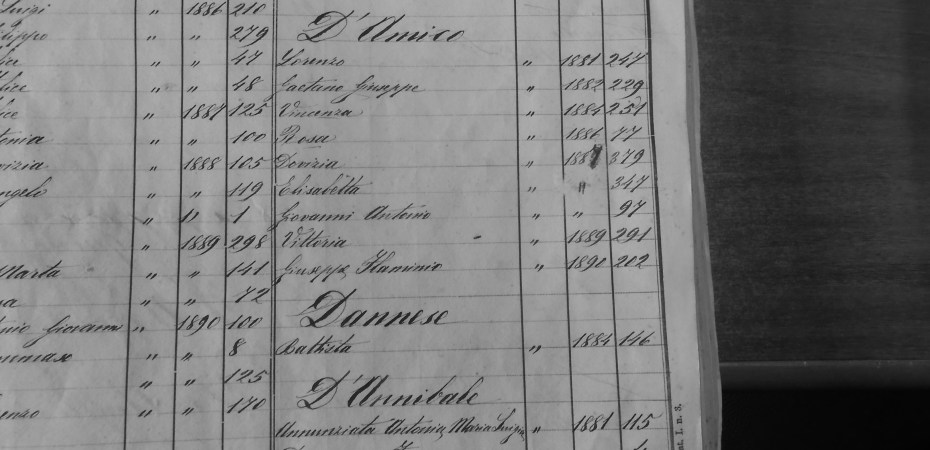 Luigi " 1886 210
" " 279
" " 47
" " 48
" 1887 125
" " 100
" 1888 105
" " 119
" " 1
" 1889 298
Marta " " 141
" " 72
Giovanni " 1890 100
" " 8
" " 125
" " 170
D'Amico
Lorenzo " 1881 247
Gaetano Giuseppe " 1882 229
Vincenza " 1884 251
Rosa " 1886 77
Dovizia " 1887 379
Elisabetta " " 347
Giovanni Antonio " " 97
Vittoria " 1889 291
Giuseppe Flaminio " 1890 202
Dannese
Battista " 1884 146
D'Annibale
Annunziata Antonia Maria Luigia " 1881 115